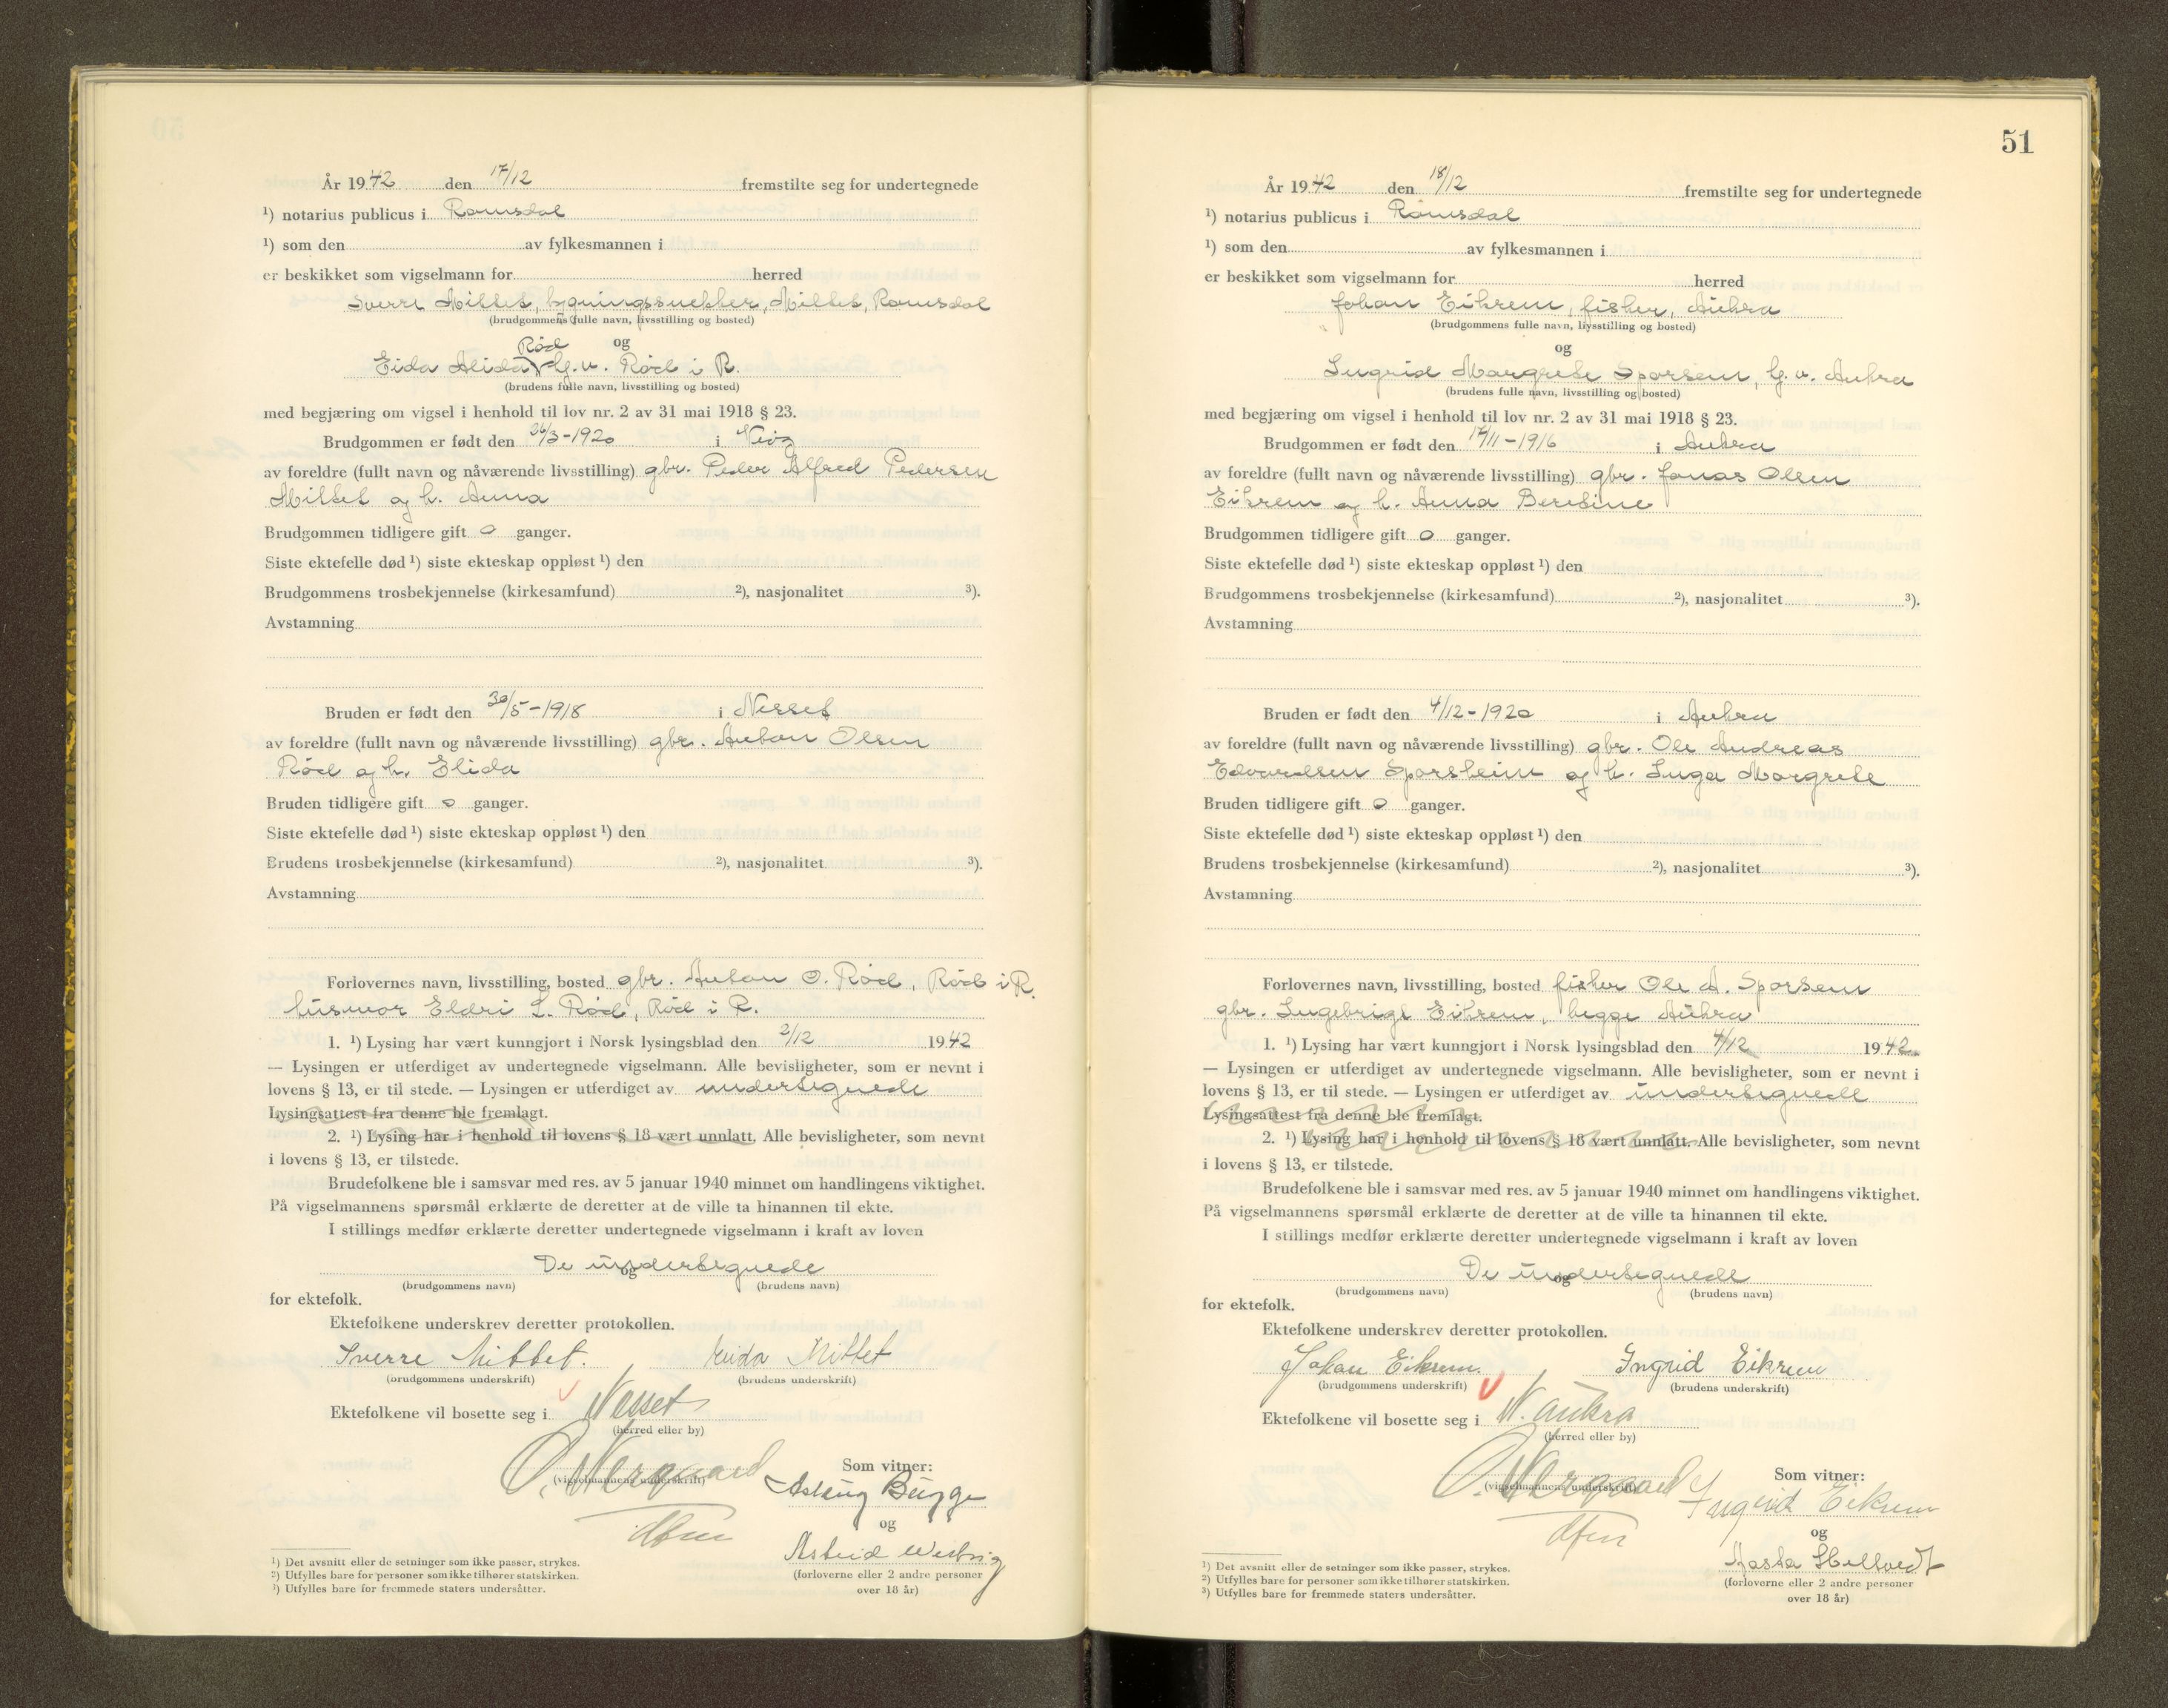 År 1942 den 17/12 fremstilte seg for undertegnede
¹) notarius publicus i Romsdal
¹) som den av fylkesmannen i
er beskikket som vigselmann for herred
Sverre Mittet, bygningssnekker, Mittet, Romsdal
(brudgommens fulle navn, livsstilling og bosted)
og
Rød
Eida Alida hj.v. Rød i R.
(brudens fulle navn, livsstilling og bosted)
med begjæring om vigsel i henhold til lov nr. 2 av 31 mai 1918 § 23.
Brudgommen er født den 26/3-1920 i
av foreldre (fullt navn og nåværende livsstilling) gbr. Peder Alfred Pedersen
Mittet og h. Anna
Brudgommen tidligere gift 0 ganger.
Siste ektefelle død ¹) siste ekteskap oppløst ¹) den
Brudgommens trosbekjennelse (kirkesamfund) ²), nasjonalitet ³).
Avstamning
Bruden er født den 30/5-1918 i Nesset
av foreldre (fullt navn og nåværende livsstilling) gbr. Anton Olsen
Rød og h. Elida
Bruden tidligere gift 0 ganger.
Siste ektefelle død ¹) siste ekteskap oppløst ¹) den
Brudens trosbekjennelse (kirkesamfund) ²), nasjonalitet ³).
Avstamning
Forlovernes navn, livsstilling, bosted gbr. Anton O. Rød, Rød i R.
husmor Eldri L. Rød, Rød i R.
1. ¹) Lysing har vært kunngjort i Norsk lysingsblad den 2/12 1942
— Lysingen er utferdiget av undertegnede vigselmann. Alle bevisligheter, som er nevnt i
lovens § 13, er til stede. — Lysingen er utferdiget av undertegnede
Lysingsattest fra denne ble fremlagt.
2. ¹) Lysing har i henhold til lovens § 18 vært unnlatt. Alle bevisligheter, som nevnt
i lovens § 13, er tilstede.
Brudefolkene ble i samsvar med res. av 5 januar 1940 minnet om handlingens viktighet.
På vigselmannens spørsmål erklærte de deretter at de ville ta hinannen til ekte.
I stillings medfør erklærte deretter undertegnede vigselmann i kraft av loven
De undertegnede
og
(brudgommens navn) (brudens navn)
for ektefolk.
Ektefolkene underskrev deretter protokollen.
Sverre Mittet. Mittet
(brudgommens underskrift) (brudens underskrift)
Ektefolkene vil bosette seg i Nesset
(herred eller by)
O. Nergaard
(vigselmannens underskrift)
Som vitner:
Aslaug Bugge
og
Astrid
(forloverne eller 2 andre personer
over 18 år)
¹) Det avsnitt eller de setninger som ikke passer, strykes.
²) Utfylles bare for personer som ikke tilhører statskirken.
³) Utfylles bare for fremmede staters undersåtter.
51
År 1942 den 18/12 fremstilte seg for undertegnede
¹) notarius publicus i Romsdal
¹) som den av fylkesmannen i
er beskikket som vigselmann for herred
Johan Eikrem, fisker, Aukra
(brudgommens fulle navn, livsstilling og bosted)
og
Ingrid Margrete Sporsem, hj.v. Aukra
(brudens fulle navn, livsstilling og bosted)
med begjæring om vigsel i henhold til lov nr. 2 av 31 mai 1918 § 23.
Brudgommen er født den 17/11-1916 i Aukra
av foreldre (fullt navn og nåværende livsstilling) gbr. Jonas Olsen
Eikrem og h. Anna Beretine
Brudgommen tidligere gift 0 ganger.
Siste ektefelle død ¹) siste ekteskap oppløst ¹) den
Brudgommens trosbekjennelse (kirkesamfund) ²), nasjonalitet ³).
Avstamning
Bruden er født den 4/12-1920 i Aukra
av foreldre (fullt navn og nåværende livsstilling) gbr. Ole Andreas
Edvardsen Sporsheim og h. Inga Margrete
Bruden tidligere gift 0 ganger.
Siste ektefelle død ¹) siste ekteskap oppløst ¹) den
Brudens trosbekjennelse (kirkesamfund) ²), nasjonalitet ³).
Avstamning
Forlovernes navn, livsstilling, bosted fisker Ole A. Sporsem
gbr. Ingebrigt Eikrem, begge Aukra
1. ¹) Lysing har vært kunngjort i Norsk lysingsblad den 4/12 1942
— Lysingen er utferdiget av undertegnede vigselmann. Alle bevisligheter, som er nevnt i
lovens § 13, er til stede. — Lysingen er utferdiget av undertegnede
Lysingsattest fra denne ble fremlagt.
2. ¹) Lysing har i henhold til lovens § 18 vært unnlatt. Alle bevisligheter, som nevnt
i lovens § 13, er tilstede.
Brudefolkene ble i samsvar med res. av 5 januar 1940 minnet om handlingens viktighet.
På vigselmannens spørsmål erklærte de deretter at de ville ta hinannen til ekte.
I stillings medfør erklærte deretter undertegnede vigselmann i kraft av loven
De undertegnede
og
(brudgommens navn) (brudens navn)
for ektefolk.
Ektefolkene underskrev deretter protokollen.
Johan Eikrem. Ingrid Eikrem
(brudgommens underskrift) (brudens underskrift)
Ektefolkene vil bosette seg i N. Aukra
(herred eller by)
O. Nergaard
(vigselmannens underskrift)
Som vitner:
Ingrid Eikrem
og
Aasta
(forloverne eller 2 andre personer
over 18 år)
¹) Det avsnitt eller de setninger som ikke passer, strykes.
²) Utfylles bare for personer som ikke tilhører statskirken.
³) Utfylles bare for fremmede staters undersåtter.